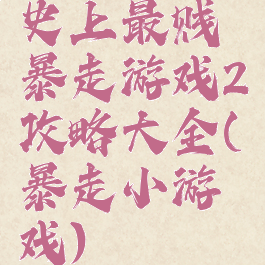 史上最贱
暴走游戏2
攻略大全(
暴走小游
戏)